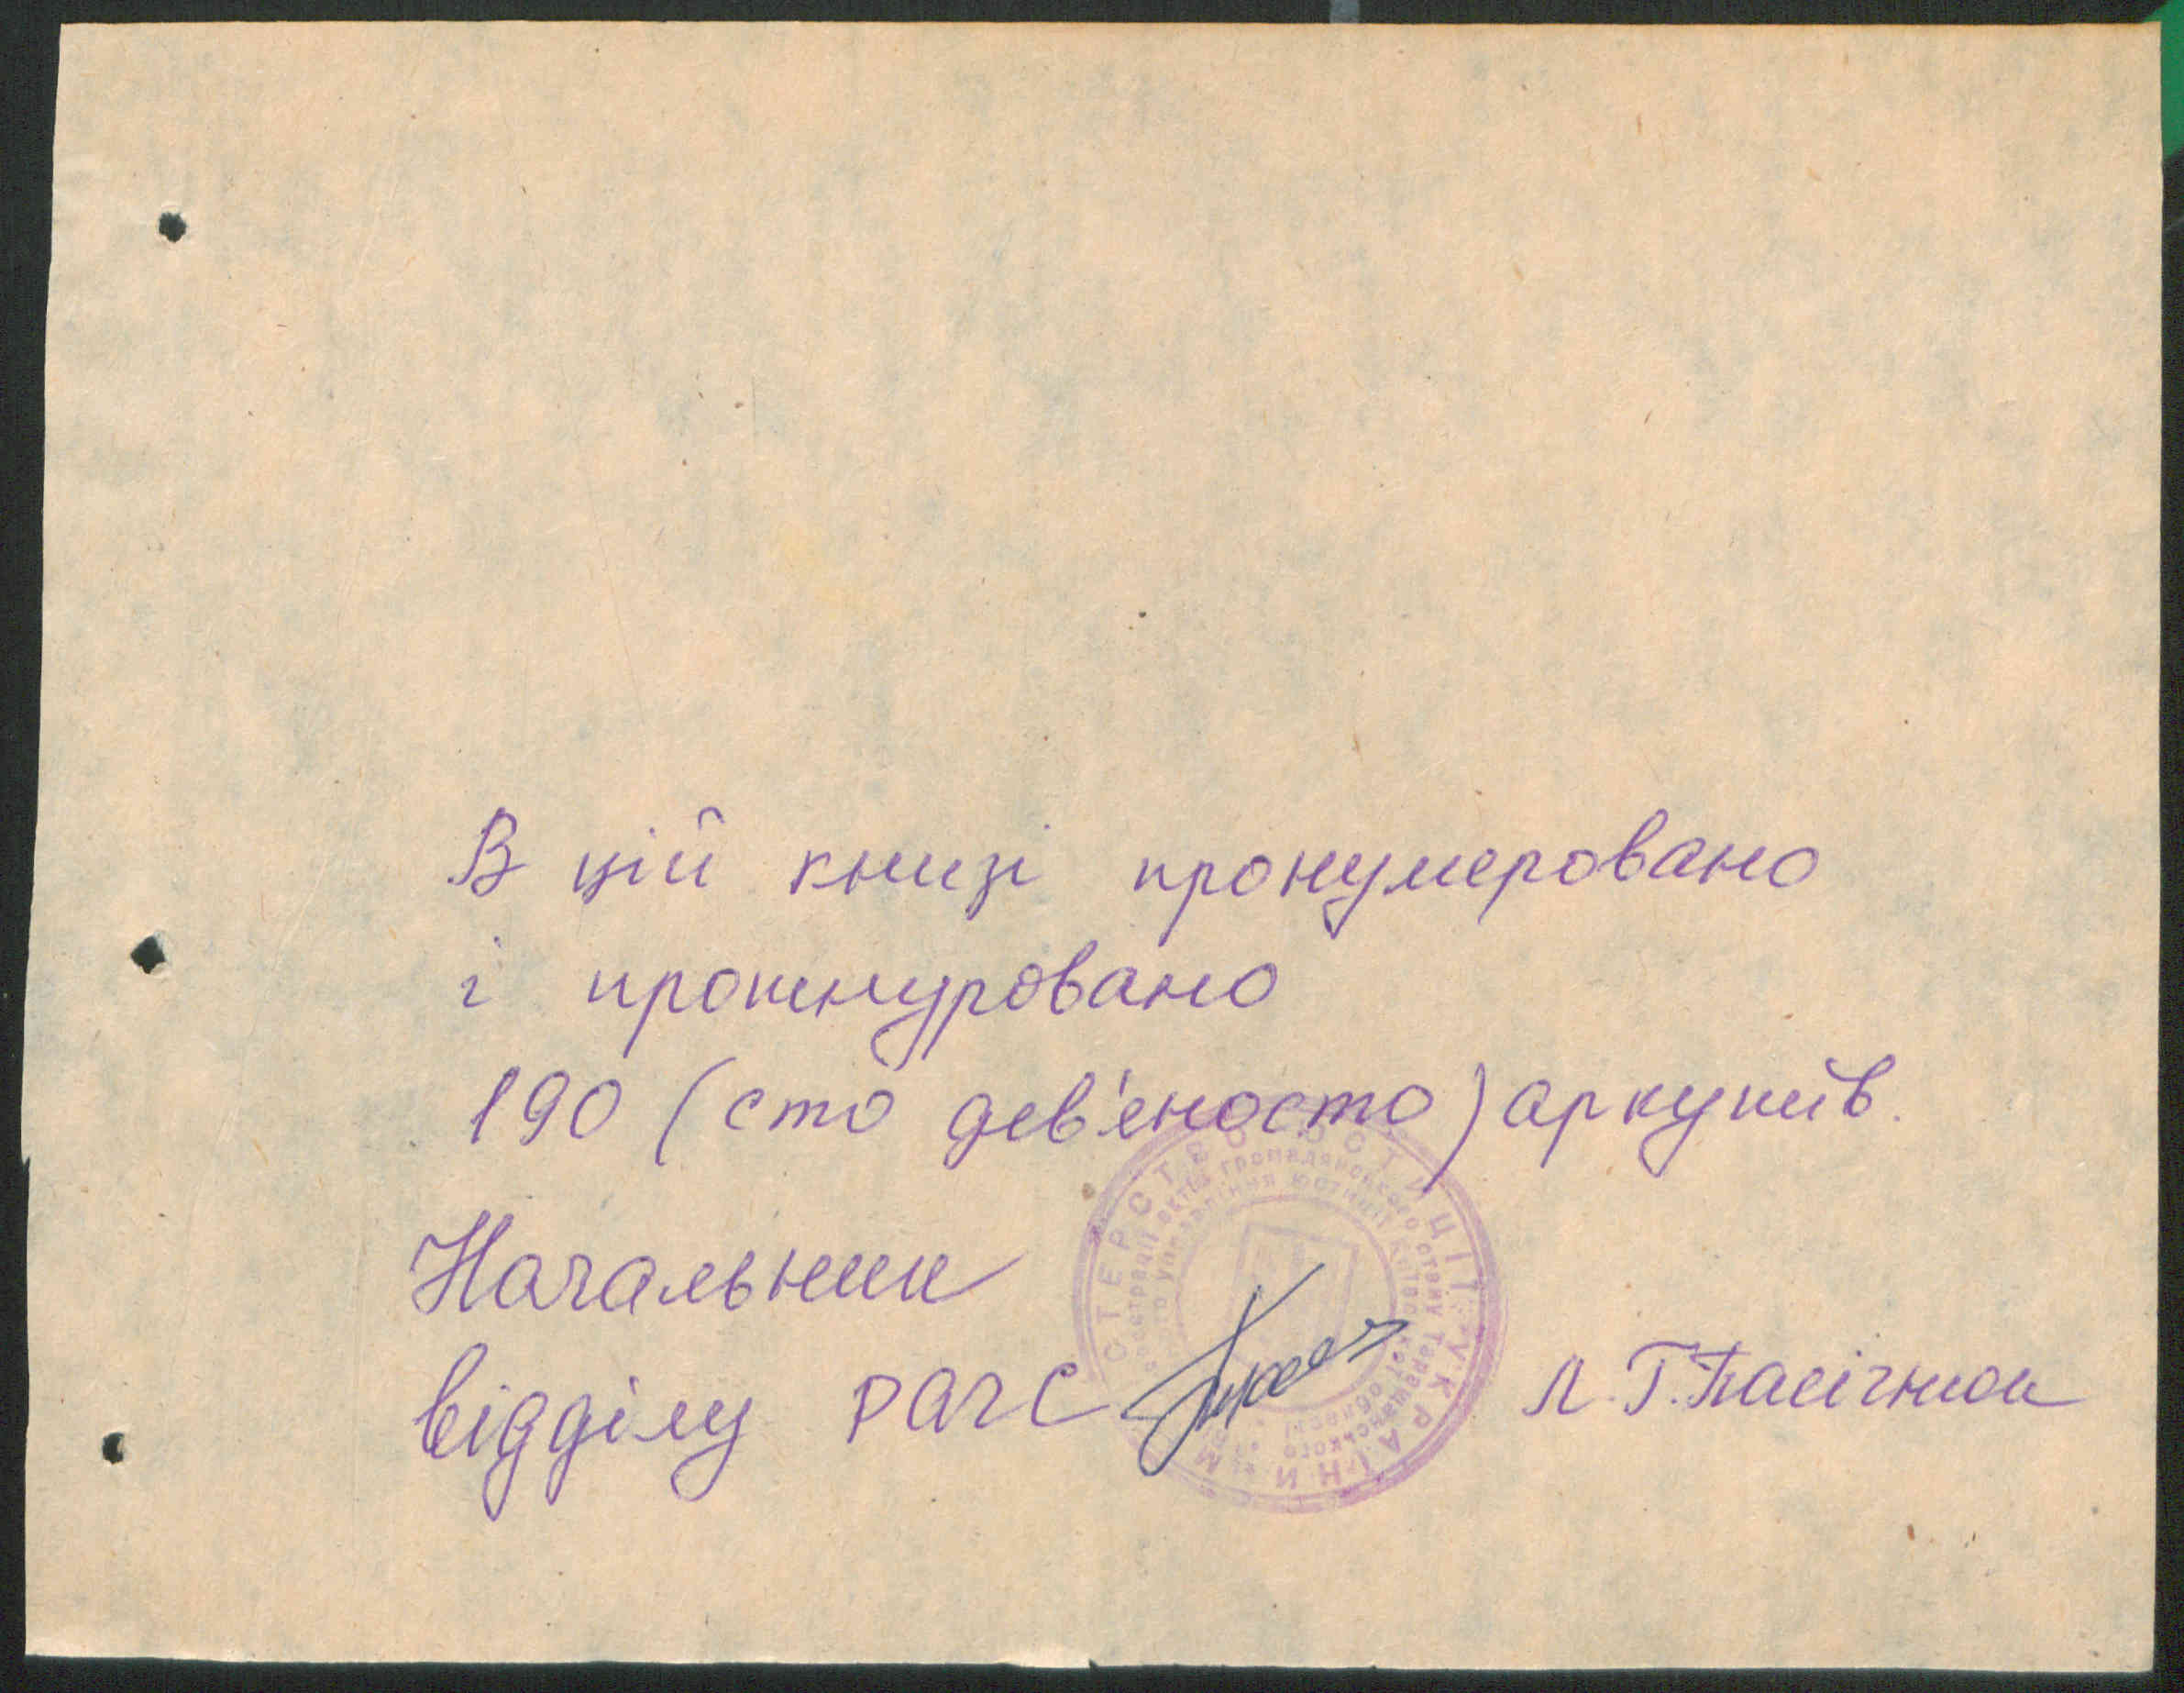 В цій книзі пронумеровано
і прошнуровано
190 (сто дев'яносто) аркушів.
Начальник
відділу РАГС
Л.Г.Пасічнюк
МІНІСТЕРСТВО ЮСТИЦІЇ УКРАЇНИ
реєстрації актів громадянського стану Таращанського
управління юстиції Київської області